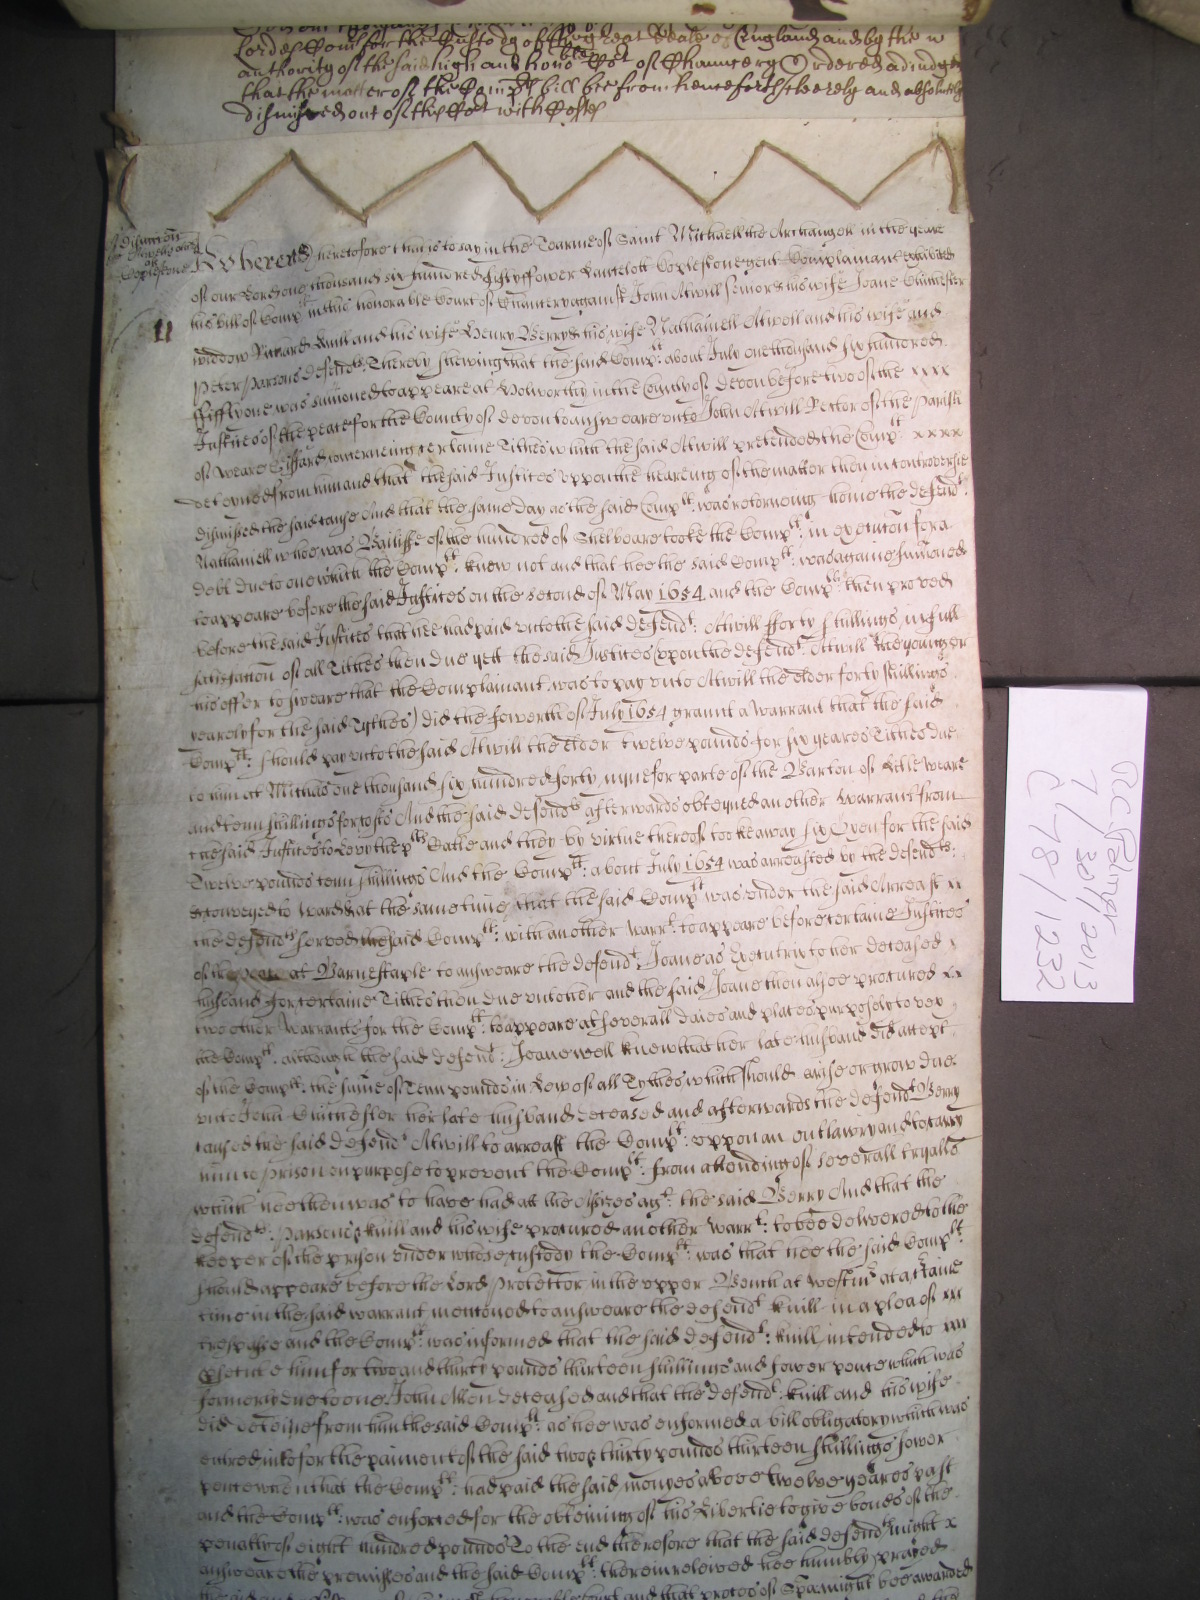 Lordes Comrs for the Custody of the great Seale of England and by the
authority of the said high and hono:ble Cort of Chauncery Ordered adiudged
that the matter of the Compltes bill bee from henceforth cleerely and absolutely
dismissed out of this Cort with Costes
A dismission
Atwell and al
Coplestone
11
Whereas heretofore that is to say in the Tearme of Saint Michaell the Archangell in the yeare
of our Lord one thousand six hundred fiftyffower Lancelott Coplestone gent Complainant exhibited
his bill of Complt in this honorable Court of Chancery against John Atwill senior & his wife Joane Chichester
widdow Richard Knill and his wife Henry Berry & his wife Nathaniell Atwell and his wife and
Peter Parsons defendts Thereby shewing that the said Complt: about July one thousand six hundred
ffifftyone was sumoned to appeare at Holworthy in the County of Devon before two of the xxxx
Justices of the peace for the County of devon to answeare vnto John Atwill Rector of the Parish
of Weare Giffard concerneing certaine Tithes which the said Atwill pretended the Complt xxxx
deteyned from him and that the said Justices vppon the heareing of the matter then in controversie
dismissed the said cause And that the same day as the said Complt: was retorneing home the defendt:
Nathaniell whoe was Bailiffe of the hundred of Shebbeare tooke the Complt: in execution for a
debt due to one which the Complt: knew not and that hee the said Complt: was againe sumoned
to appeare before the said Justices on the second of May 1654 and the Complt: then proved
before the said Justices that hee had paid vnto the said defendt: Atwill fforty shillings in full
satisfaction of all Tithes then due yett the said Justices (vpon the defendt: Atwill the younger
his offer to sweare that the Complainant was to pay vnto Atwill the elder forty shillings
yearely for the said Tythes) did the fowerth of July 1654 graunt a warrant that the said
Complt: should pay vnto the said Atwill the elder twelve pounds for six yeares Tithes due
to him at Michas one thousand six hundred forty nyne for parte of the Barton of Litle Weare
and tenn shillings for costs And the said defendts afterwards obteyned an other warrant from
the said Justices to Levy the pltes Catle and they by virtue thereof tooke away six Oxen for the said
Twelve pounds tenn shillings And the Complt: about July 1654 was arreasted by the defendts:
& conveyed to ward & at the same time that the said Complt was vnder the said Arreast xx
the defendts served the said Complt: with another Warrt: to appeare before certaine Justices
of the peace at Barnestaple to answeare the defendt Joane as Executrix to her deceased x
husband for certaine Tithes then due vnto her and the said Joane then alsoe procured xx
two other Warrants for the Complt: to appeare at severall daies and places purposely to vex
the Complt: although the said defendt: Joane well knew that her late husband did accept
of the Complt: the sume of Tenn pounds in Lew of all Tythes which should arise or grow due
vnto John Chichester her late husband deceased and afterwards the defendt Berry
caused the said defendt Atwill to arreast the Complt: vppon an outlawry and to carry
him to prison on purpose to prevent the Complt: from attending of severall tryalls
which hee then was to have had att the Assizes agt: the said Berry And that the
defendts: Parsons Knill and his wife procured an other Warrt: to bee delivered to the
keeper of the prison under whose custody the Complt: was that hee the said Complt:
should appeare before the Lord Protector in the vpper Bench at Westmr at a certaine
time in the said warrant mentioned to answeare the defendt Knill in a plea of xxx
trespasse and the Complt: was informed that the said defendt: Knill intended to xxx
&c him for two and thirty pounds thirteen shillings and fower pence which was
formerly due to one John Allen deceased and that the defendt: Knill and his wife
did deteine from him the said Complt as hee was enformed a bill obligatory which was
entred into for the paiement of the said two & thirty pounds thirteen shillings fower
pence when that the Complt: had paid the said monyes above twelve yeares past
and the Complt: was enforced for the obteining of his Libertie to give bonds of the
penalty of eight hundred pounds To the end therefore that the said defendts might x
answeare the premisses and the said Complt: therein releived hee humbly prayed
and that proces of Spa might bee awarded
RCC Palmer
30/7/2013
C78/1232